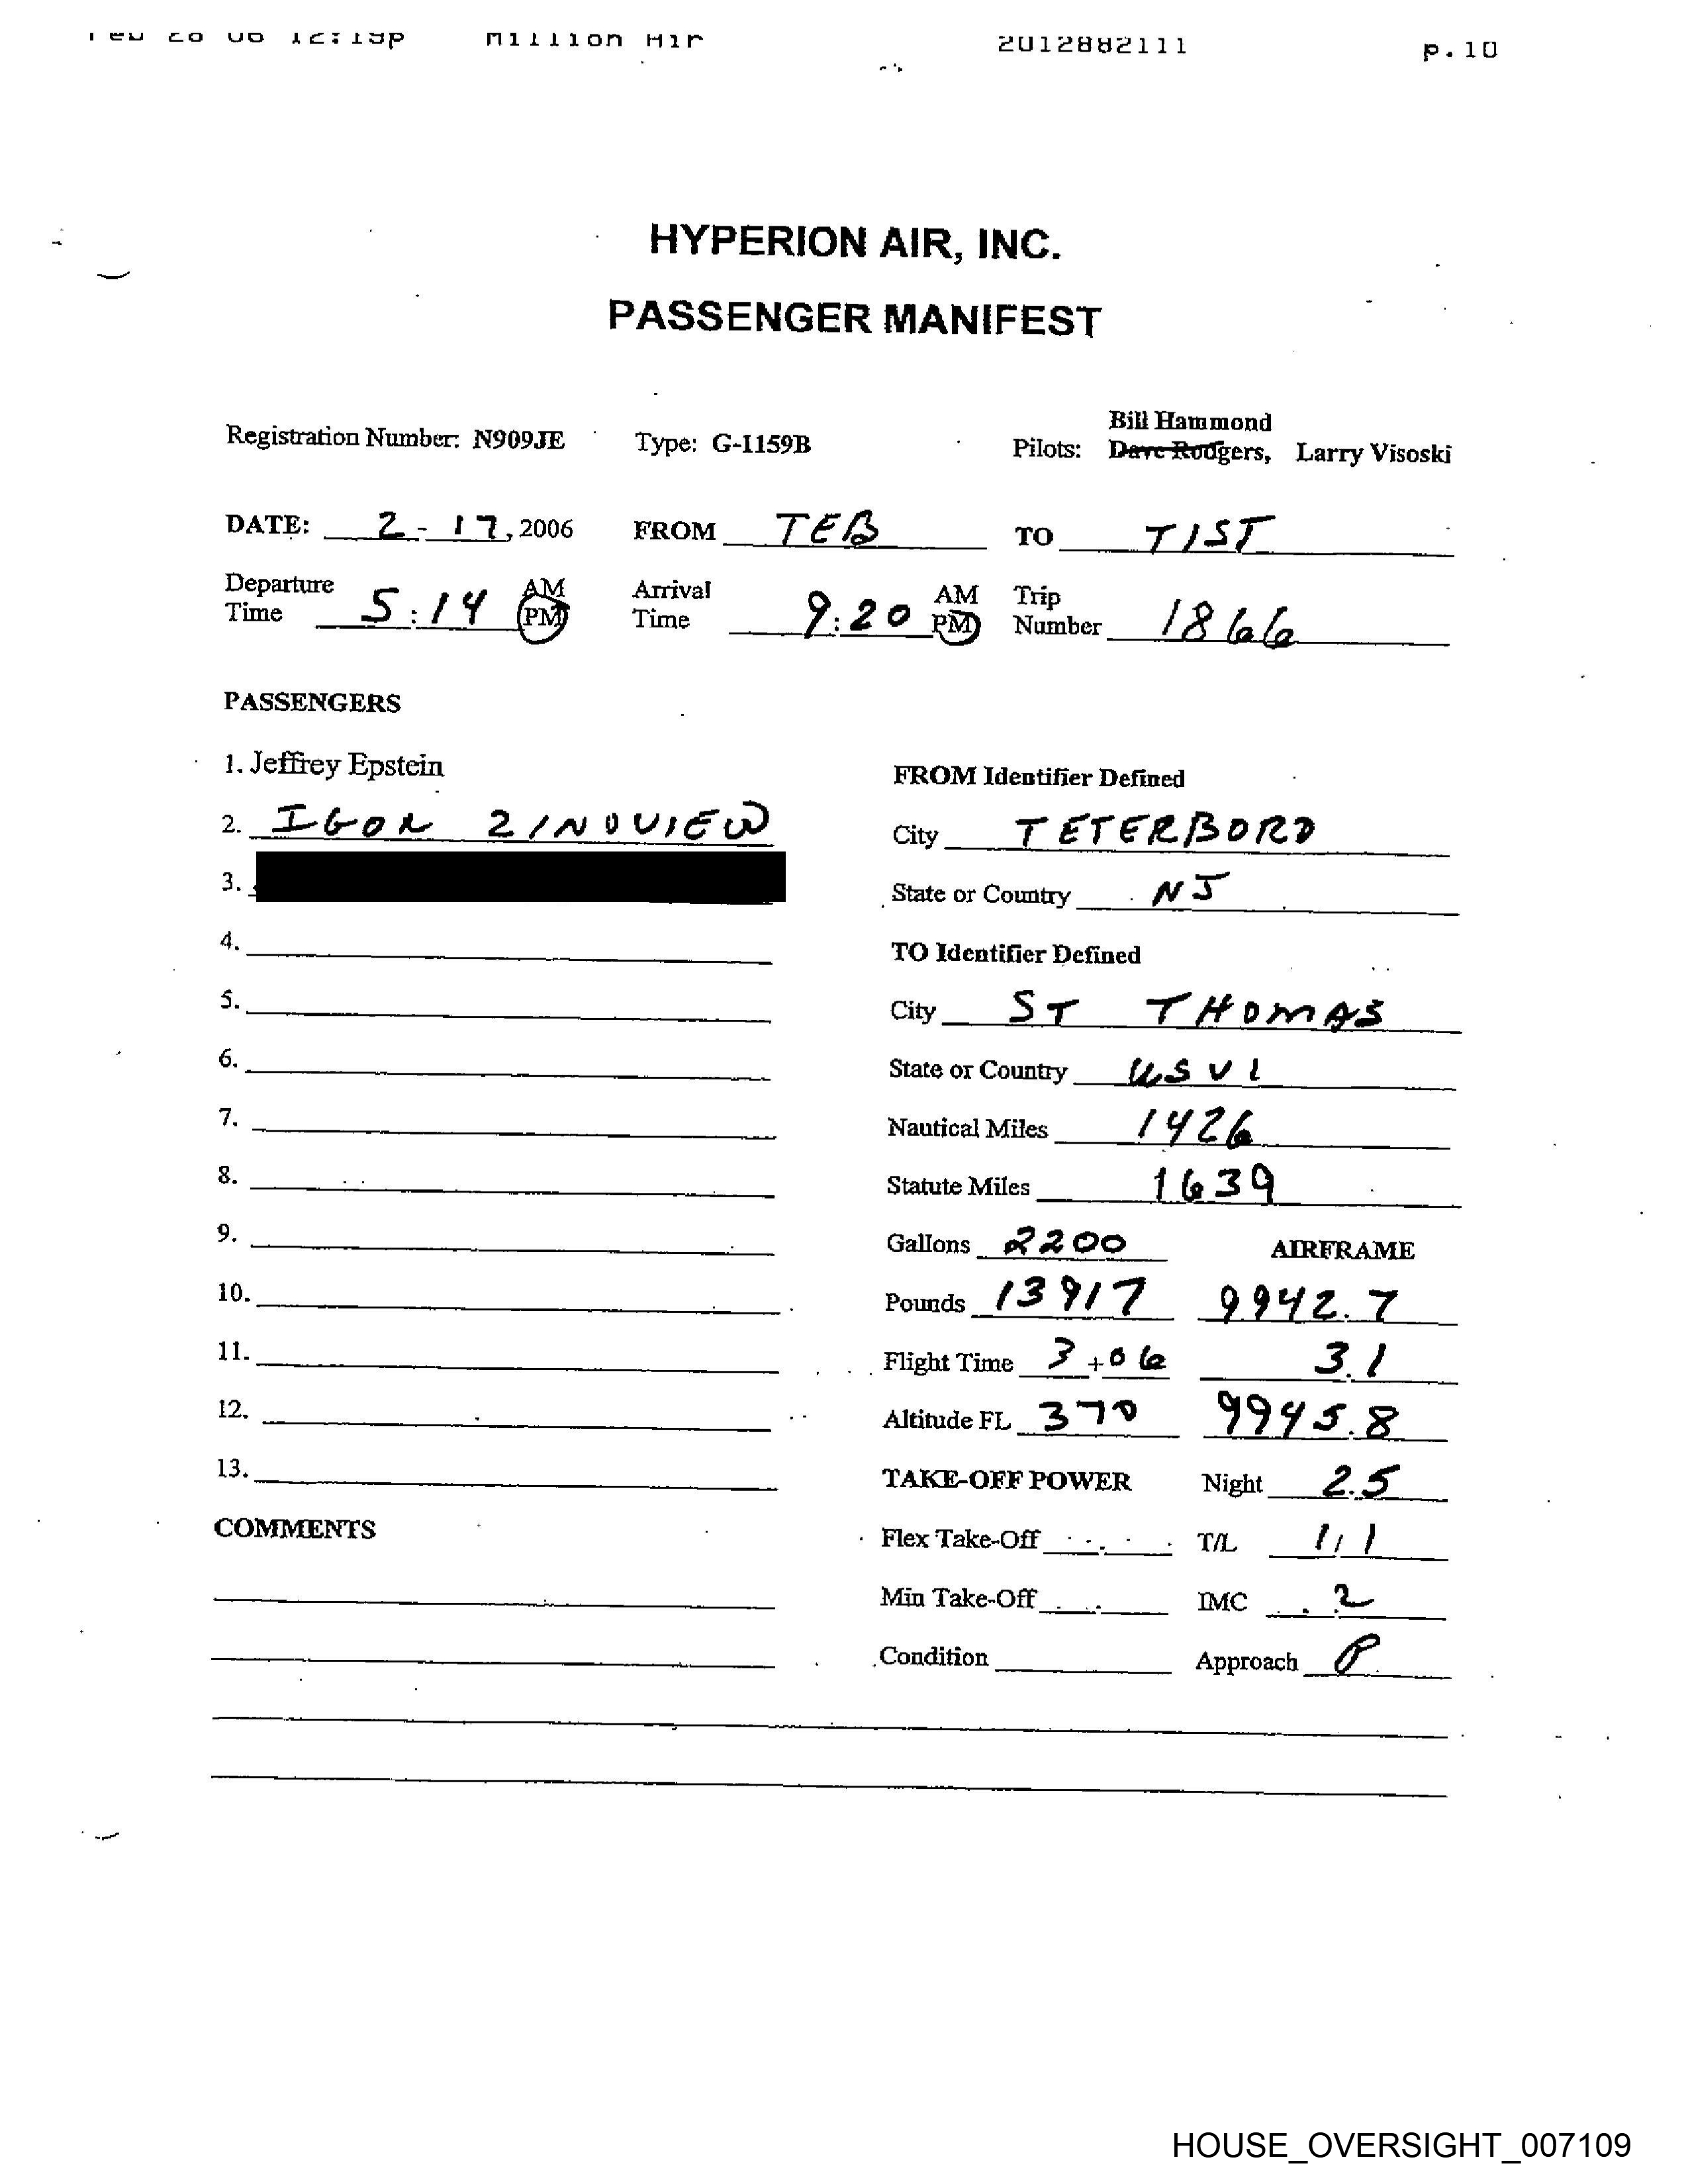 12:19p Million Air 2012882111 p.10
HYPERION AIR, INC.
PASSENGER MANIFEST
Bill Hammond
Registration Number: N909JE Type: G-1159B Pilots: Dave Rodgers, Larry Visoski
DATE: 2-17, 2006 FROM TEB TO TIST
Departure Time 5:14 AM PM Arrival Time 9:20 AM PM Trip Number 1866
PASSENGERS
1. Jeffrey Epstein
FROM Identifier Defined
2. IGOR ZINOVIEW
City TETERBORO
3.
State or Country NJ
4.
TO Identifier Defined
5.
City ST THOMAS
6.
State or Country USVI
7.
Nautical Miles 1426
8.
Statute Miles 1639
9.
Gallons 2200 AIRFRAME
10.
Pounds 13917 9942.7
11.
Flight Time 3+06 3.1
12.
Altitude FL 370 9945.8
13.
TAKE-OFF POWER Night 2.5
COMMENTS
Flex Take-Off T/L 1/1
Min Take-Off IMC .2
Condition Approach P
HOUSE_OVERSIGHT_007109